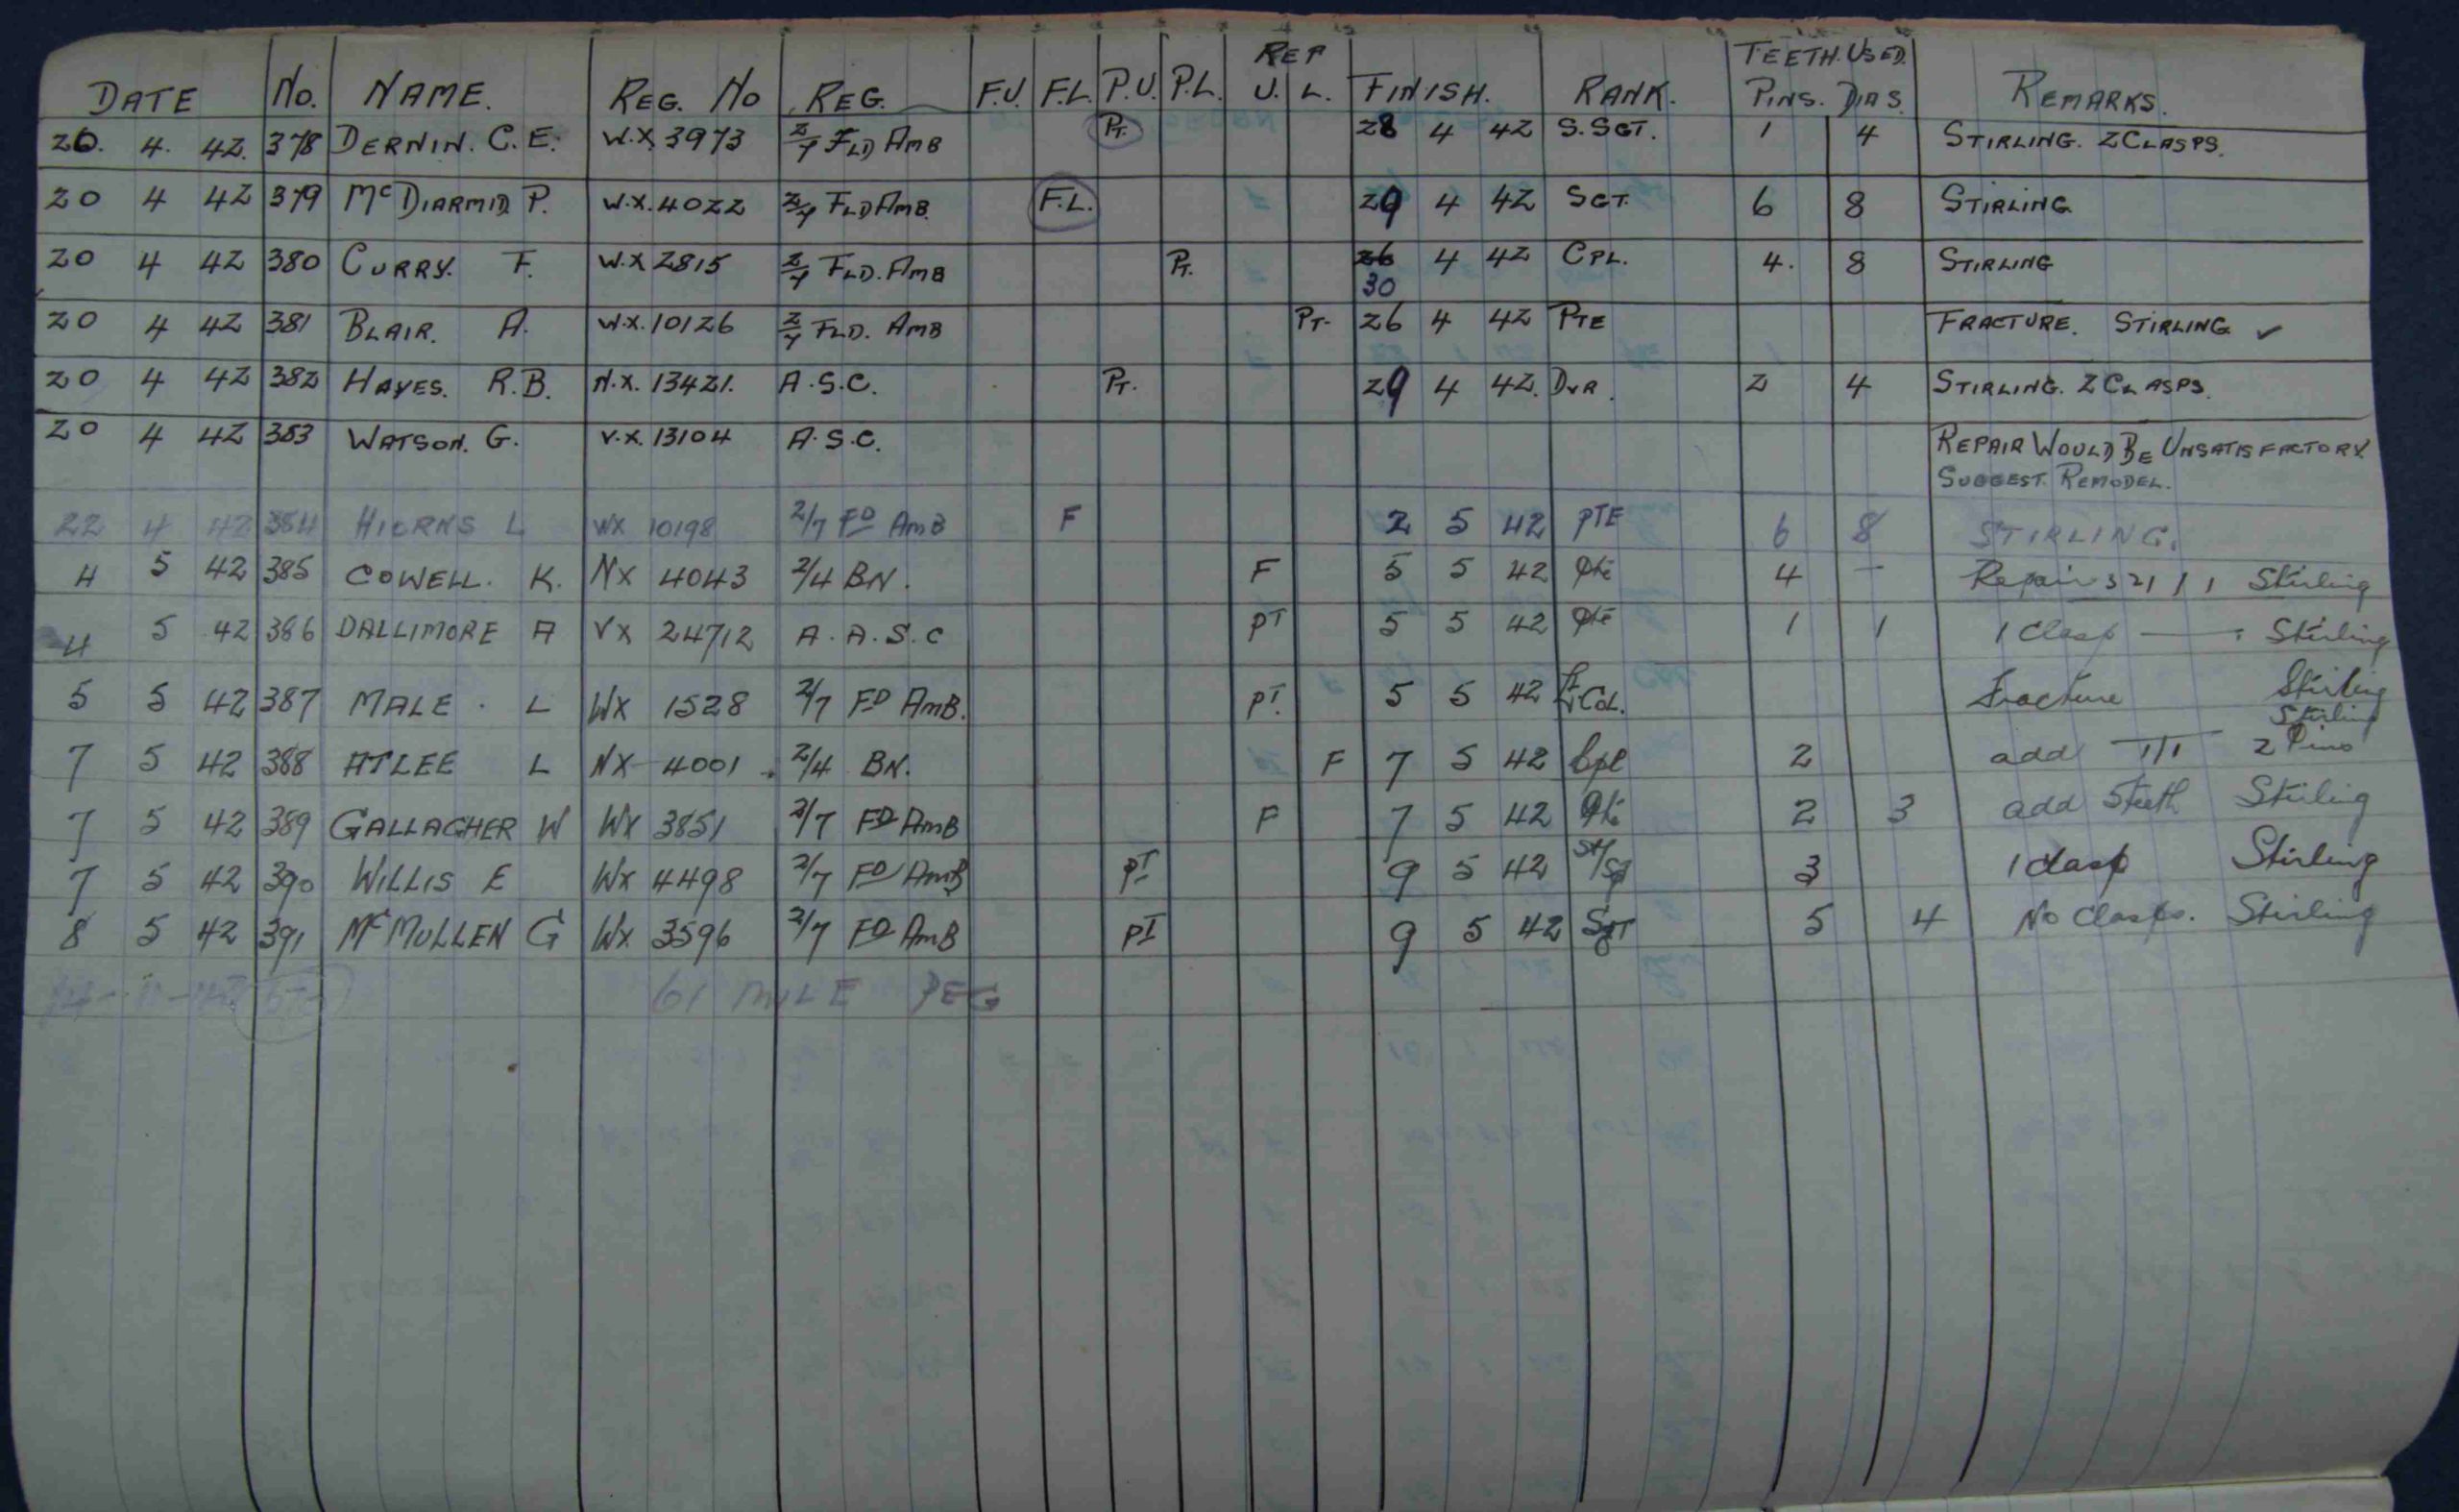 REP TEETH USED.
DATE No. NAME. REG. No REG. F.U. F.L. P.U. P.L. U. L. FINISH. RANK. PINS. DIAS. REMARKS.
20. 4. 42. 378 DERNIN. C.E. W.X. 3973 2/7 FLD AMB PT. 28 4 42 S.SGT. 1 4 STIRLING. 2 CLASPS.
20 4 42 379 McDIARMID P. W.X. 4022 2/7 FLD AMB. F.L. 29 4 42 SGT. 6 8 STIRLING
20 4 42 380 CURRY. F. W.X 2815 2/7 FLD. AMB PT. 26 4 42 CPL. 4. 8 STIRLING
30
20 4 42 381 BLAIR. A. W.X. 10126 2/7 FLD. AMB PT. 26 4 42 PTE FRACTURE. STIRLING ✓
20 4 42 382 HAYES. R.B. N.X. 13421. A.S.C. PT. 29 4 42. DVR. 2 4 STIRLING. 2 CLASPS.
20 4 42 383 WATSON. G. V.X. 13104 A.S.C. REPAIR WOULD BE UNSATISFACTORY
SUGGEST. REMODEL.
22 4 42 384 HIORNS L WX 10198 2/7 FD AMB F 2 5 42 PTE 6 8 STIRLING.
4 5 42 385 COWELL. K. NX 4043 2/4 BN. F 5 5 42 Pte 4 - Repair 321/1 Stirling
4 5 42 386 DALLIMORE A VX 24712 A.A.S.C PT 5 5 42 Pte 1 1 1 Clasp — Stirling
5 5 42 387 MALE. L WX 1528 2/7 FD AMB. PT. 5 5 42 Lt COL. Fracture Stirling
Stirling
7 5 42 388 ATLEE L NX 4001. 2/4 BN. F 7 5 42 Cpl 2 add 1/1 2 Pins
7 5 42 389 GALLAGHER W WX 3851 2/7 FD AMB F 7 5 42 Pte 2 3 add 5 teeth Stirling
7 5 42 390 WILLIS E WX 4498 2/7 FD AMB PT 9 5 42 St/Sgt 3 1 clasp Stirling
8 5 42 391 McMULLEN G WX 3596 2/7 FD AMB PT 9 5 42 SgT 5 4 No Clasps. Stirling
61 MILE PEG